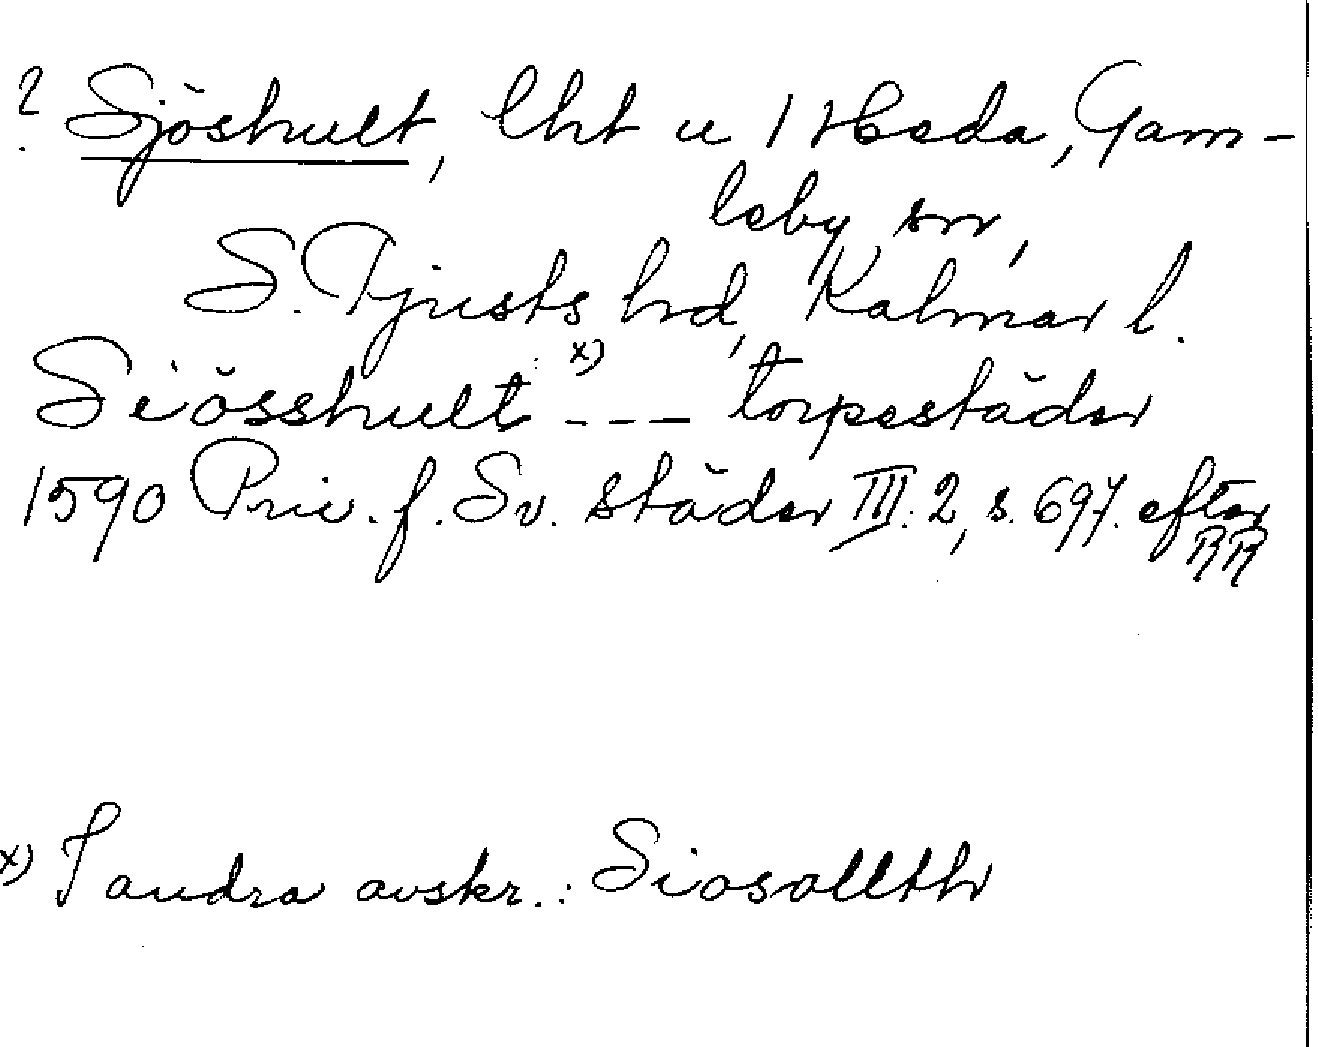 ? Sjöshult, lht u 1 Heda, Gam-
leby sn,
S. Tjusts hd, Kalmar l.
Siösshult x) --- torpestäder
1590 Priv. f. Sv. städer III: 2, s. 697. efter
RR
x) I andra avskr.: Siosollth